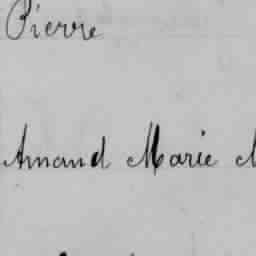 Pierre
Amand Marie